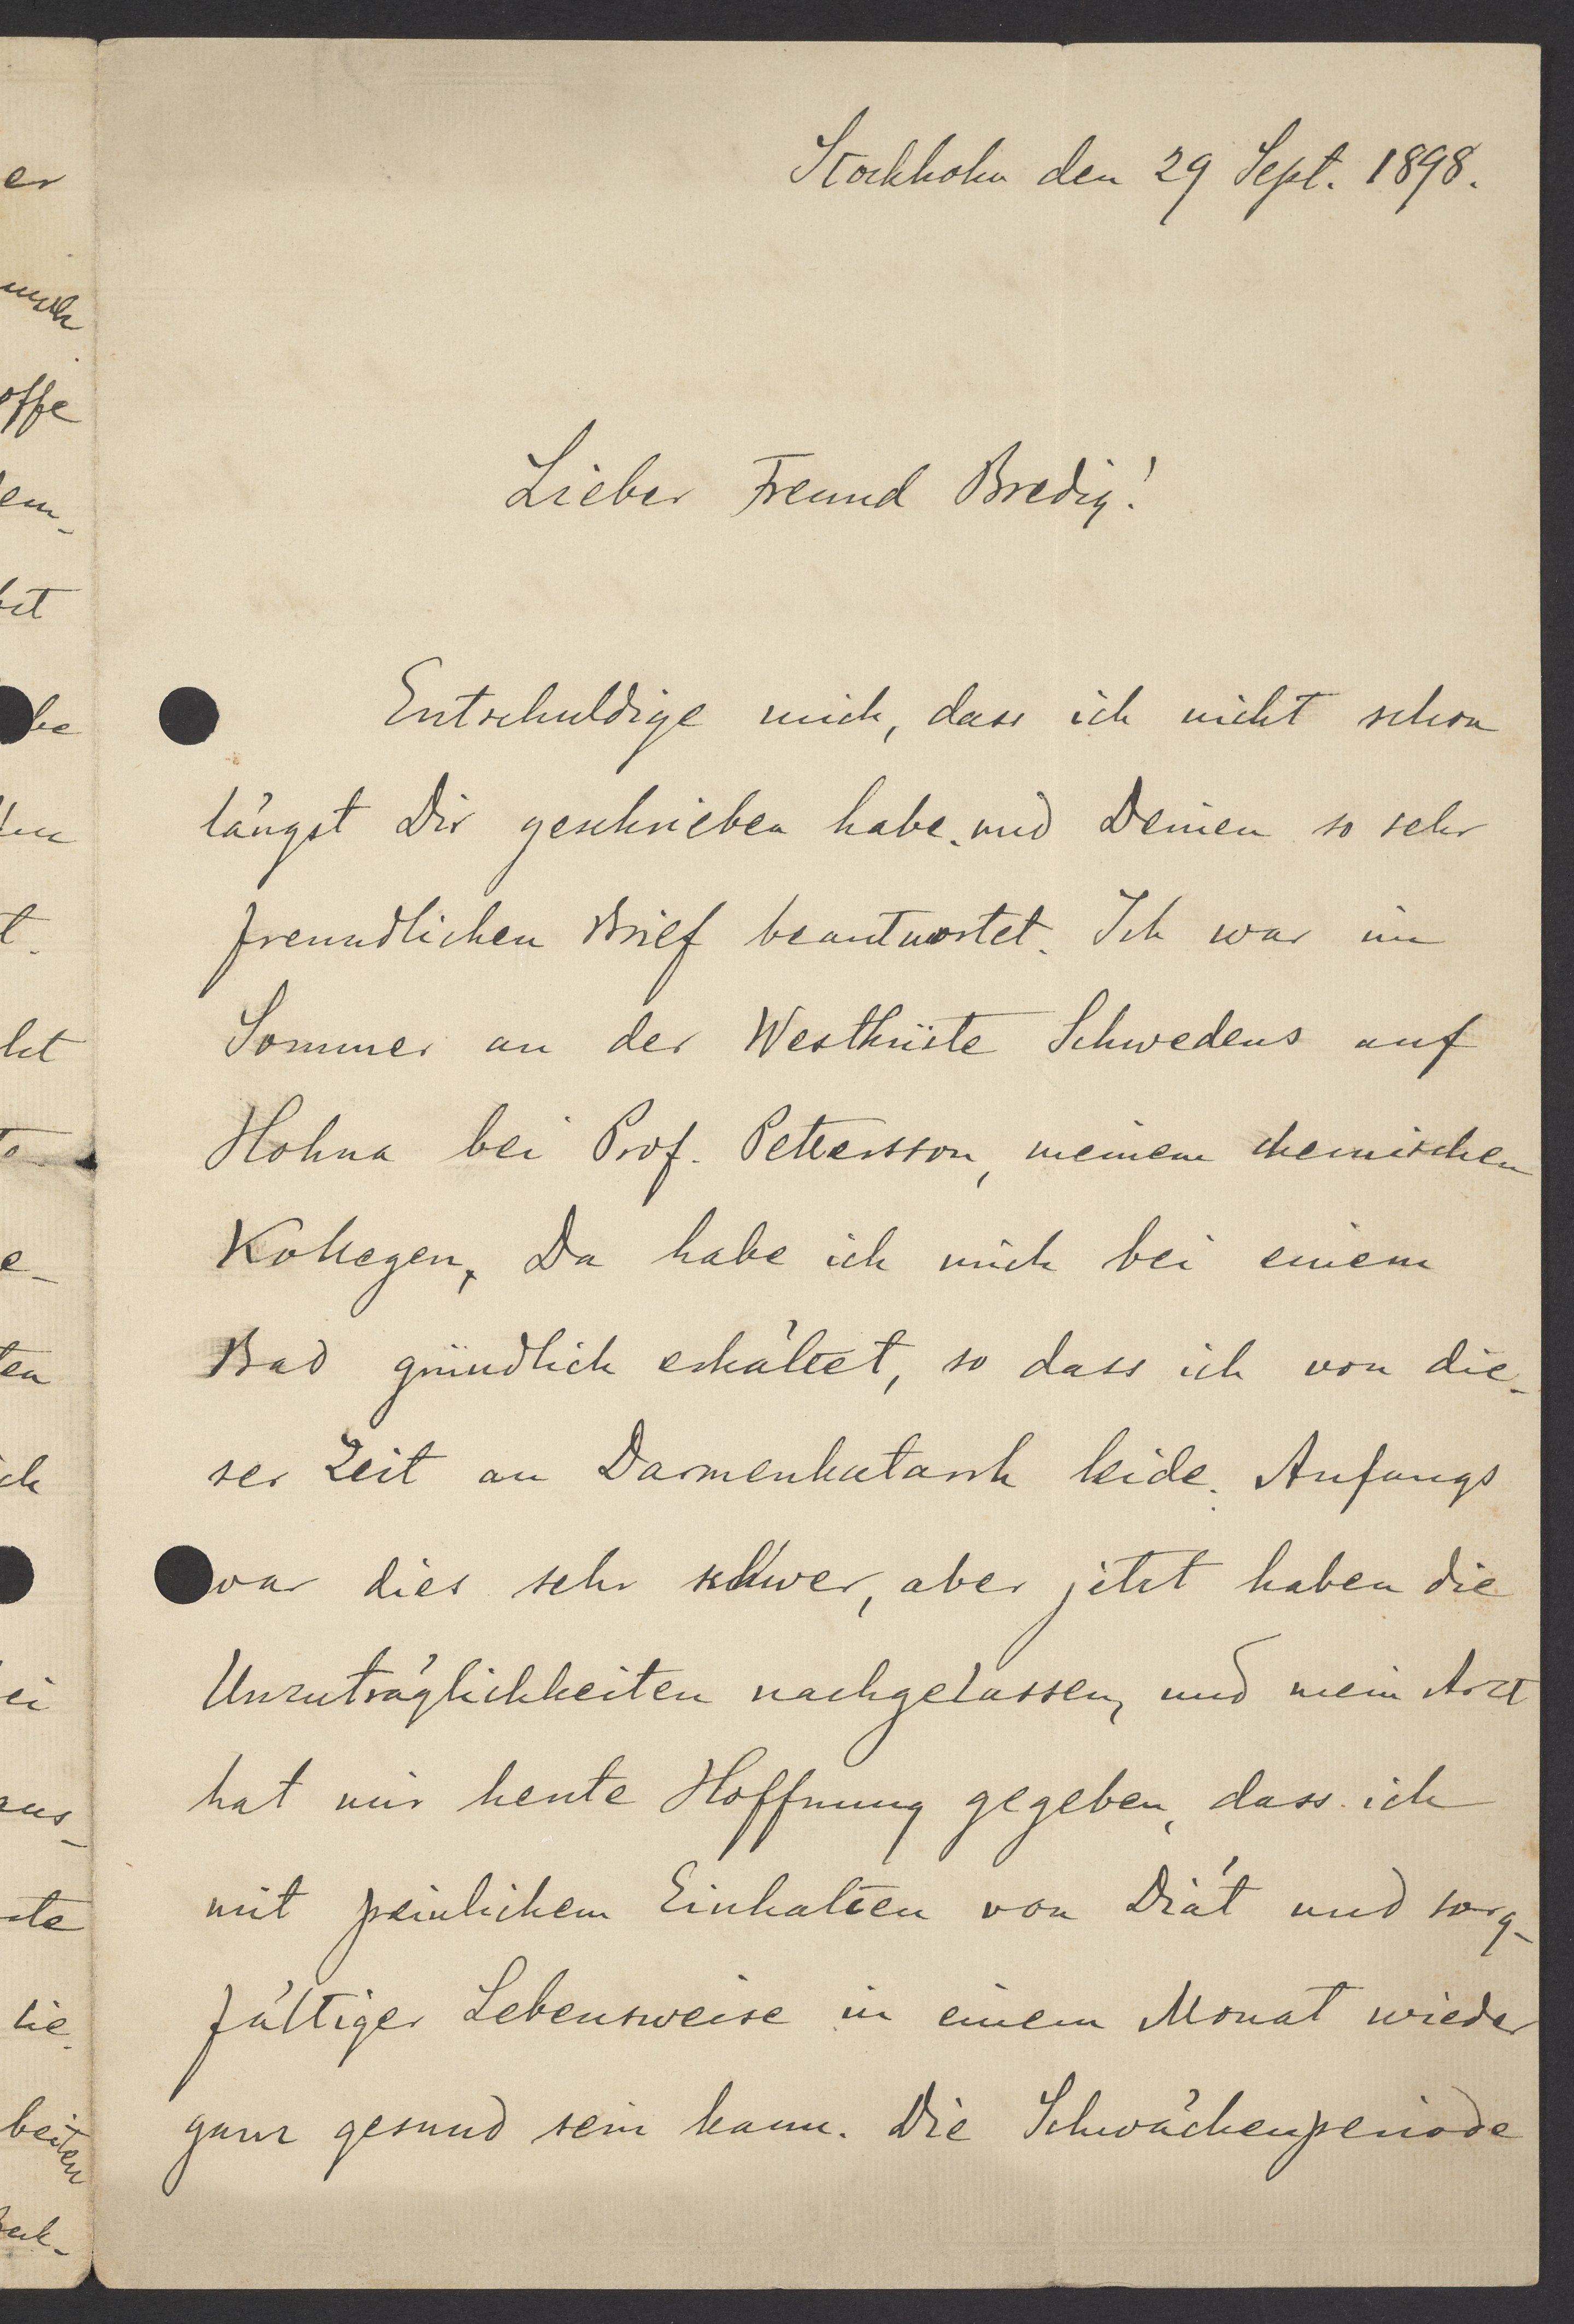 Stockholm den 29 Sept. 1898.
Lieber Freund Bredig!
Entschuldige mich, dass ich nicht schon
längst Dir geschrieben habe und Deinen so sehr
freundlichen Brief beantwortet. Ich war im
Sommer an der Westküste Schwedens auf
Holma bei Prof. Pettersson, meinem chemischen
Kollegen, Da habe ich mich bei einem
Bad gründlich erkältet, so dass ich von die-
ser Zeit an Darmenkatarrh leide. Anfangs
war dies sehr schwer, aber jetzt haben die
Unzuträglichkeiten nachgelassen, und mein Arzt
hat mir heute Hoffnung gegeben, dass ich
mit peinlichem Einhalten von Diät und sorg-
fältiger Lebensweise in einem Monat wieder
ganz gesund sein kann. Die Schwächenperiode